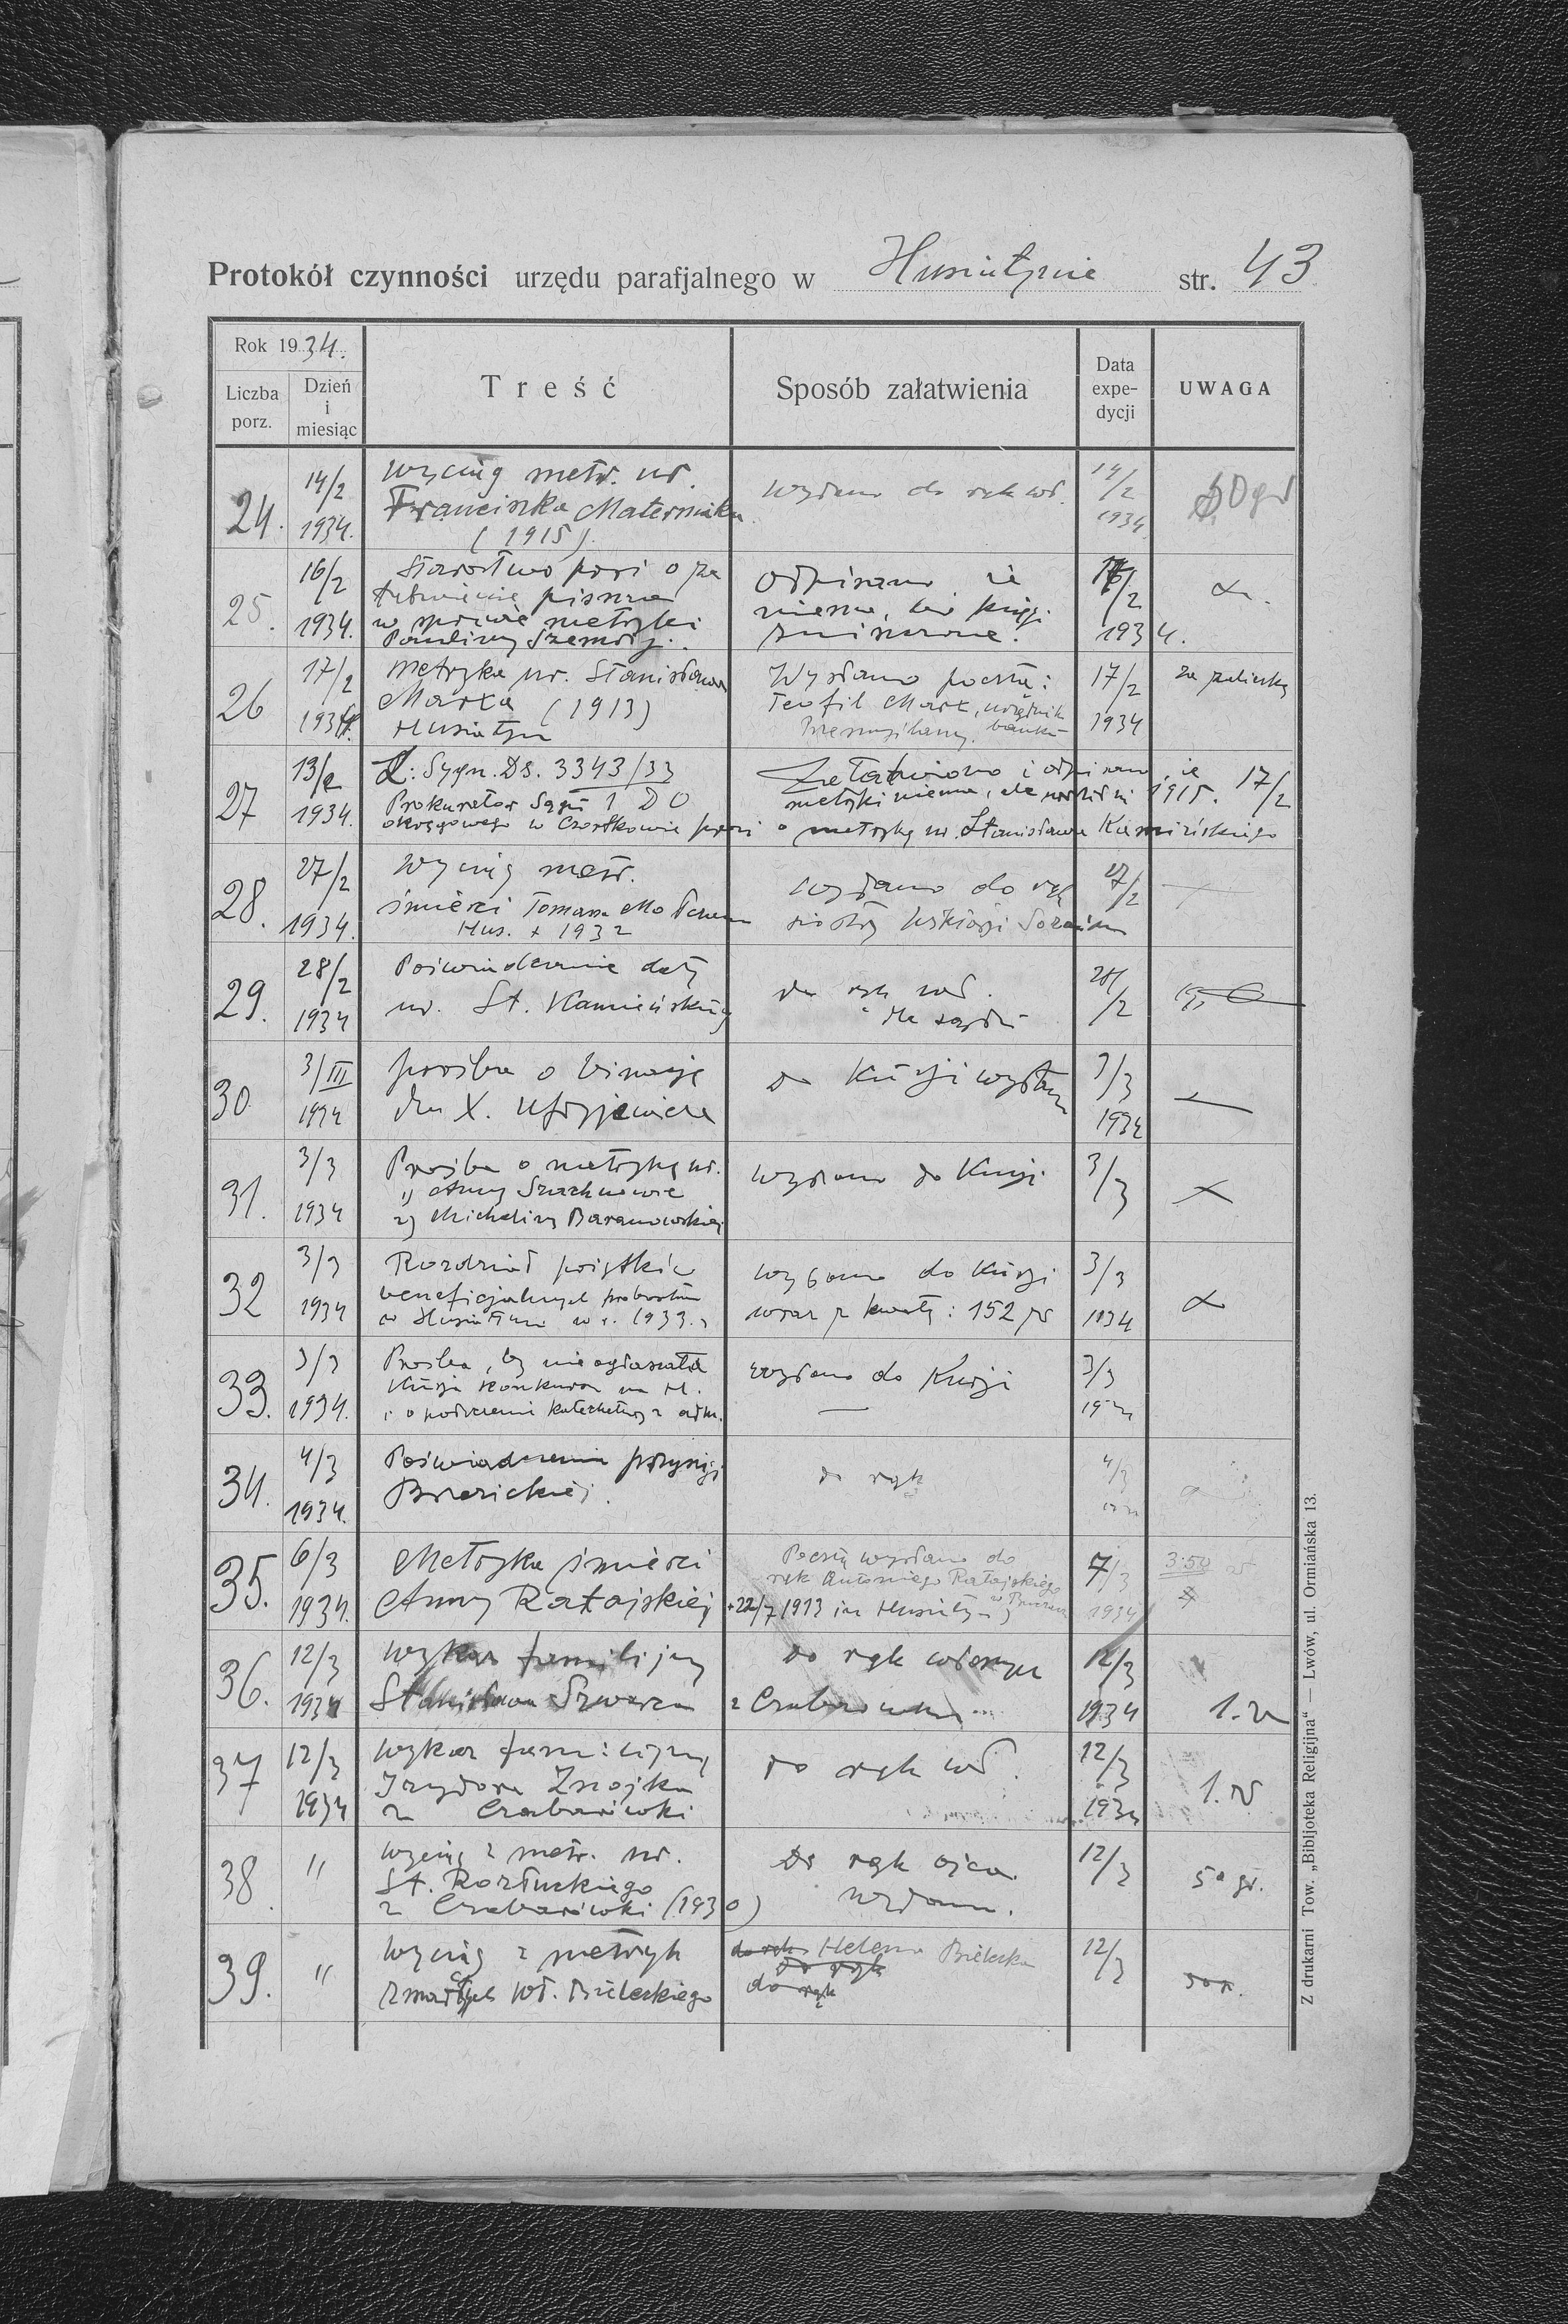 Protokół czynności urzędu parafjalnego w Husiatynie str. 43
Rok 1934.
Liczba porz.
Dzień i miesiąc
Treść
Sposób załatwienia
Data expe-dycji
UWAGA
24. 14/2 1934.
Wyciąg metr. ur.
Franciszka Maternika
(1915).
Wydano do rąk wł.
14/2 1934.
25. 16/2 1934.
Starostwo prosi o
pisma
w sprawie metryki
Pauliny
Odpisano, że
niema, bo księgi
zniszczone.
/2 1934.
26 17/2 1934.
Metryka ur. Stanisława
Marka (1913)
Husiatyn
Wysłano pocztą:
Teofil Mark, urzędnik
Przemyślany. banku
17/2 1934
za zaliczką
27 13/2 1934.
Sygn. Ds. 3343/33
Prokurator Sądu
okręgowego w Czortkowie prosi o metrykę ur. Stanisława Kamińskiego
Załatwiono i odpisano, że
metryki niema, ale 1915.
17/2
28. 27/2 1934.
Wyciąg metr.
śmierci Tomasza
Hus. + 1932
Wydano do rąk
siostry
27/2
29. 28/2 1934
Poświadczenie daty
ur. St. Kamińskiego
do rąk wł.
dla sądu
28/2
30. 3/III 1934
prośba o binację
dla X.
do Kurji wysłano
3/3 1934
31. 3/3 1934
Prośba o metrykę ur.
1) Anny
2) Micheliny Baranowskiej
Wysłano do Kurji
3/3
32 3/3 1934
Rozdział pożytków
beneficjalnych probostwa
w Husiatynie w r. 1933.
wysłano do Kurji
wraz z kwotą: 152 zł
3/3 1934
33. 3/3 1934.
Prośba, by nie ogłaszała
Kurja konkursu na H.
wysłano do Kurji
3/3
34. 4/3 1934.
Poświadczenie przysięgi
do rąk
4/3
35. 6/3 1934.
Metryka śmierci
Anny Ratajskiej
Pocztą wysłano do
rąk Antoniego Ratajskiego
+22/7 1913 in Husiatyn
7/3 1934
3:50 zł
36. 12/3 1934
Wykaz familijny
Stanisława Szwarca
do rąk własnych
z
12/3 1934
1. zł
37 12/3 1934
Wykaz familijny
Izydora Znojka
z Czabarówki
do rąk wł.
12/3 1934
1. zł
38. "
Wyciąg z metr. ur.
St. Rozłuckiego
z Czabarówki (1930)
Do rąk ojca
wydano.
12/3
50 gr.
39. "
Wyciąg z metryk
zmarłych Wł. Bieleckiego
do rąk Helena Bielecka
do rąk
do rąk
12/3
Z drukarni Tow. „Bibljoteka Religijna“ — Lwów, ul. Ormiańska 13.